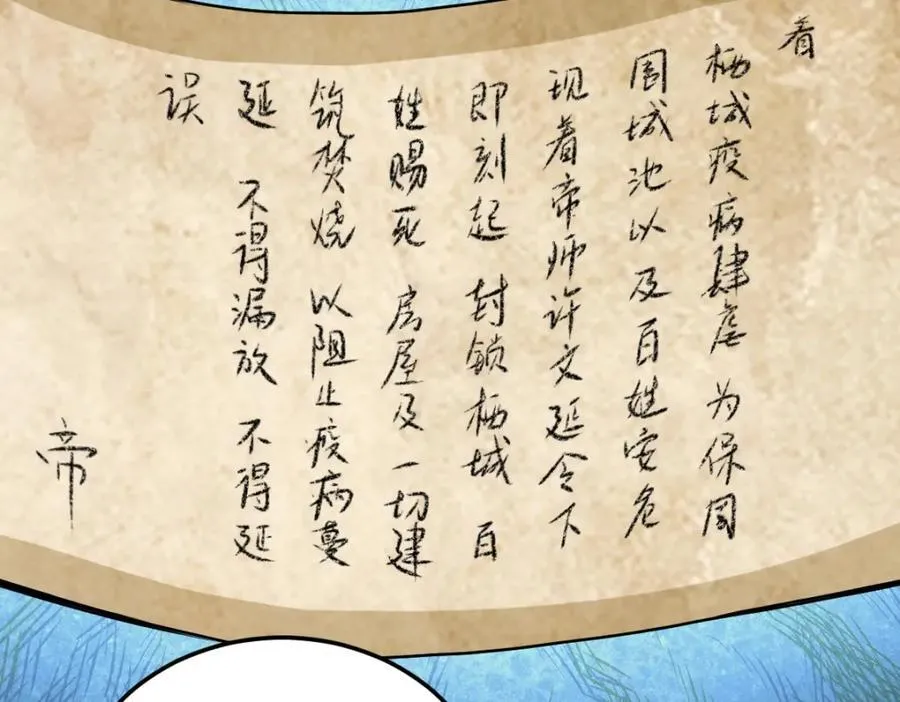 着
栖城疫病肆虐 为保周
围城池以及百姓安危
现着帝师许文延令下
即刻起 封锁栖城 百
姓赐死 房屋及一切建
筑焚烧 以阻止疫病蔓
延 不得漏放 不得延
误
帝